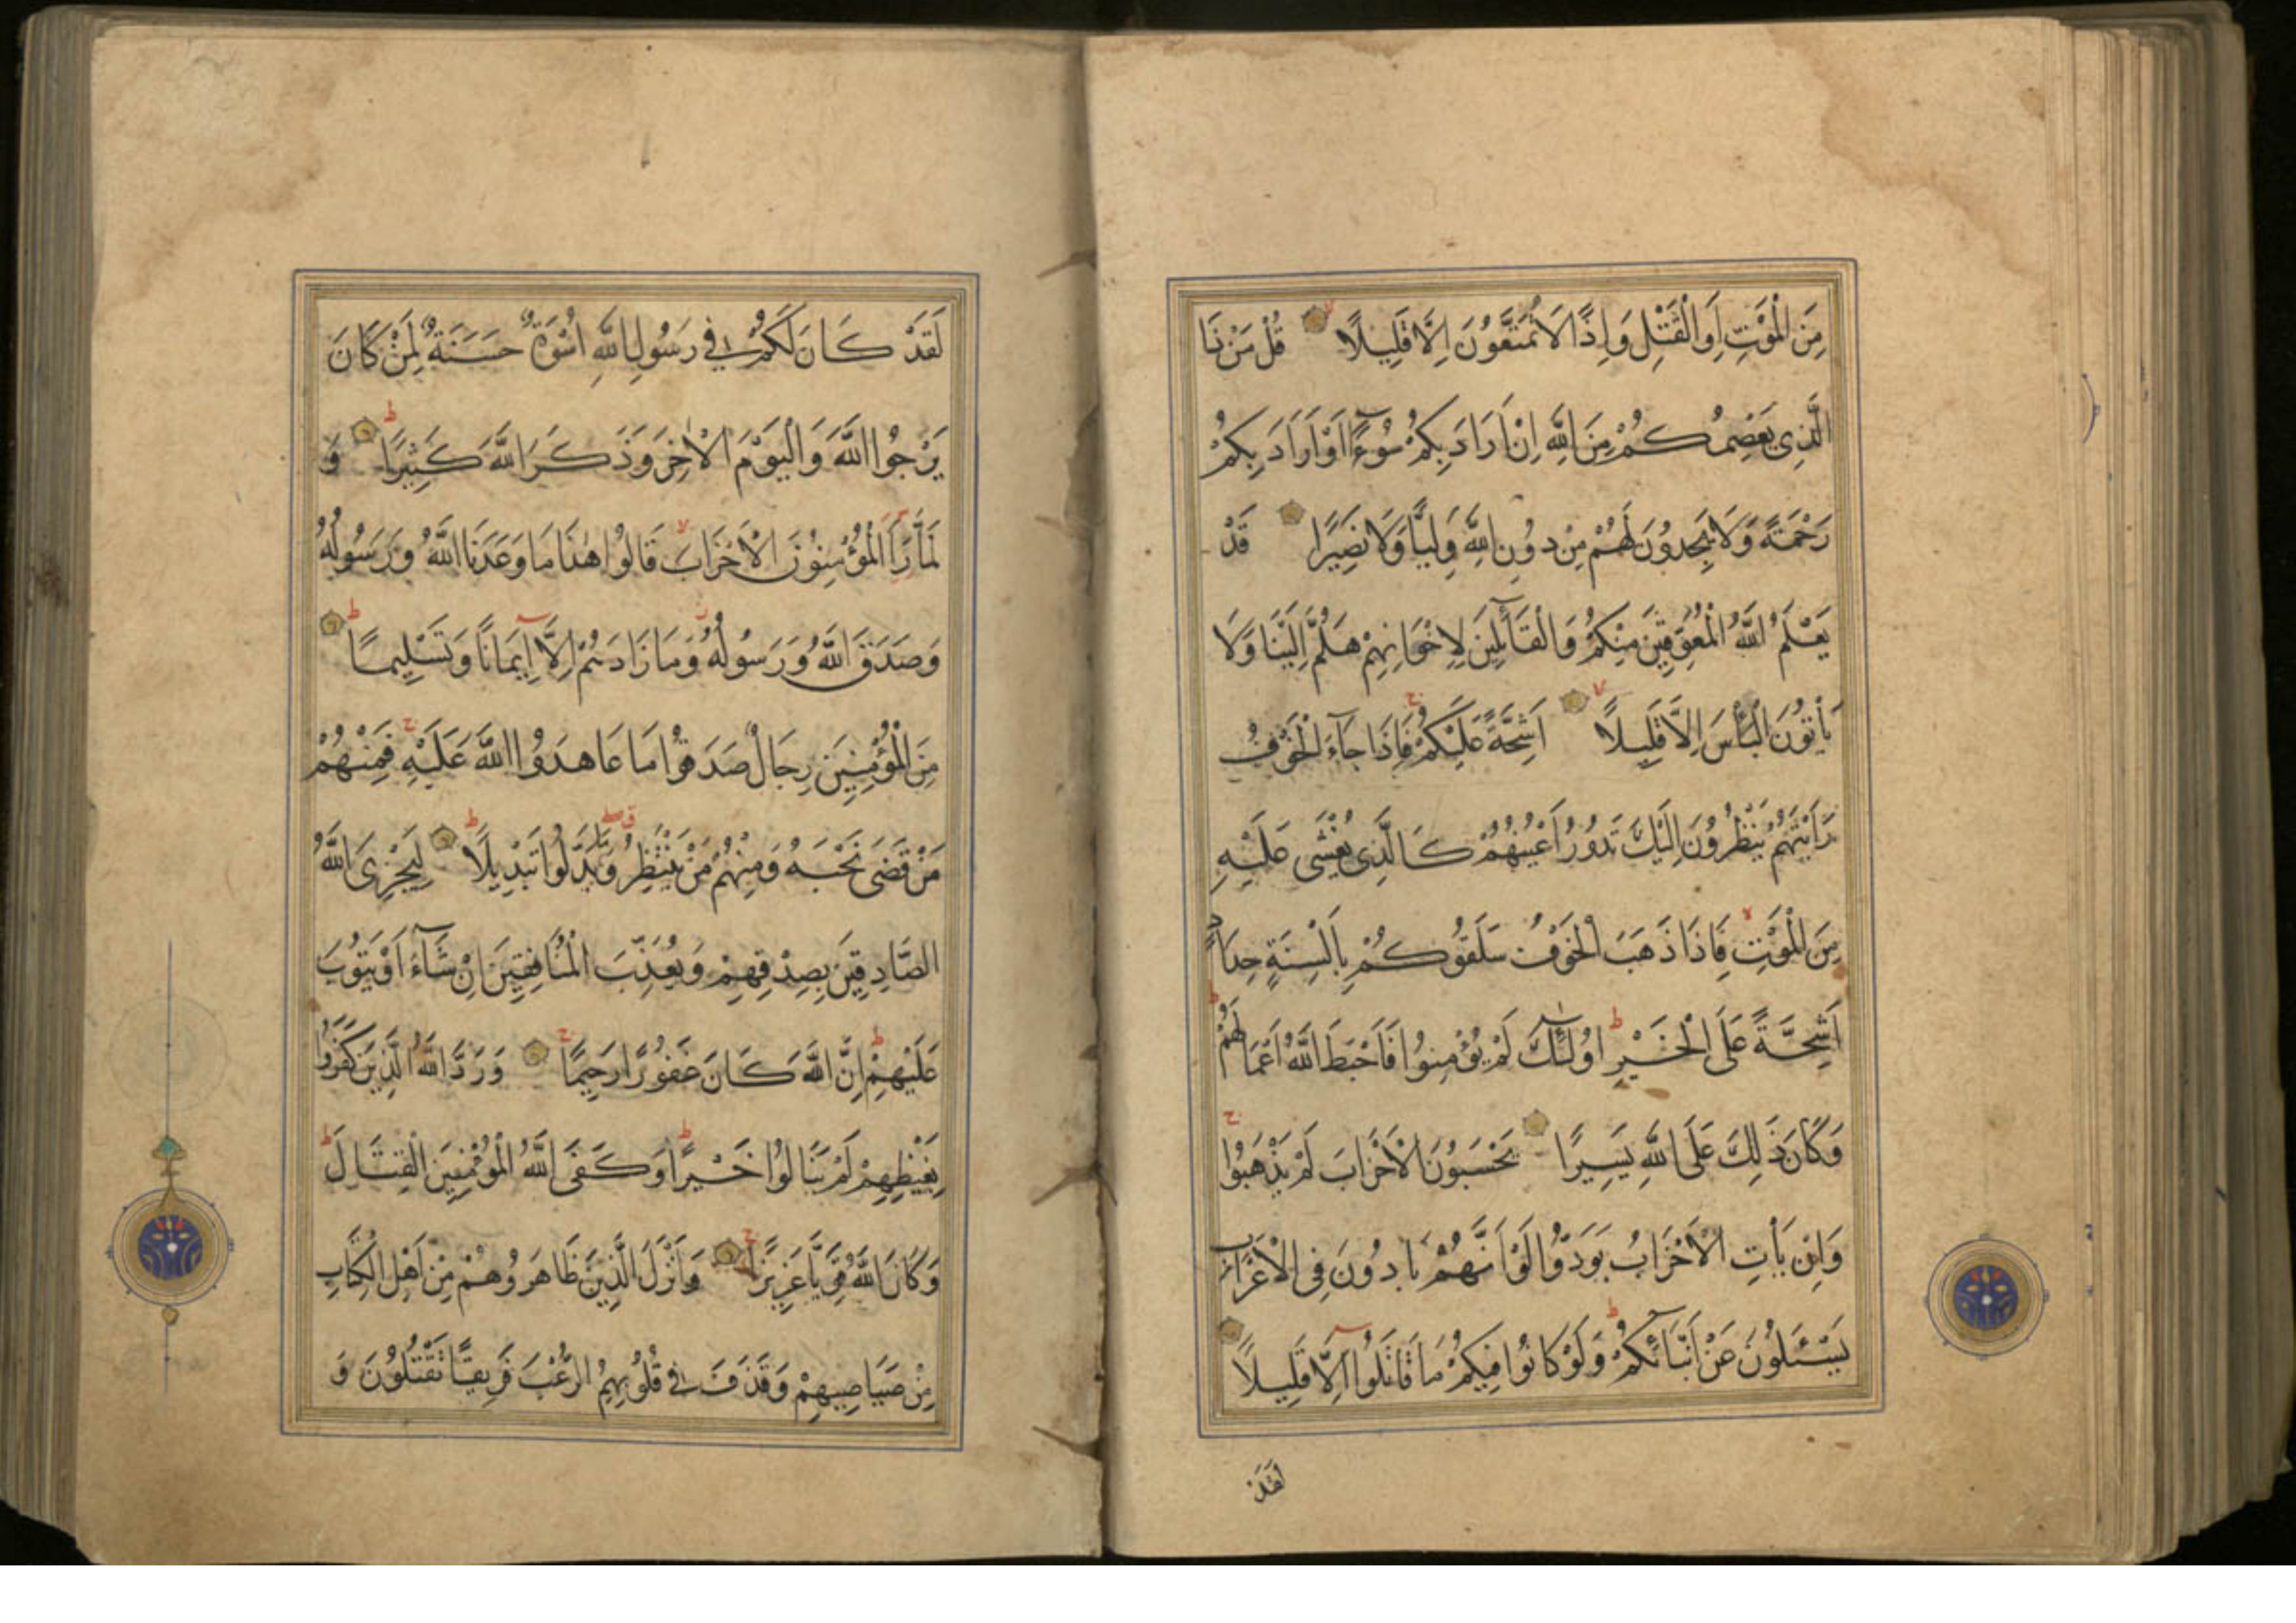 مِنَ الْمَوْتِ اَوِ الْقَتْلِ وَاِذًا لَا تُمَتَّعُونَ اِلَّا قَلِيلًا قُلْ مَنْ ذَا
الَّذِى يَعْصِمُكُمْ مِنَ اللّٰهِ اِنْ اَرَادَ بِكُمْ سُوءًا اَوْ اَرَادَ بِكُمْ
رَحْمَةً وَلَا يَجِدُونَ لَهُمْ مِنْ دُونِ اللّٰهِ وَلِيًّا وَلَا نَصِيرًا قَدْ
يَعْلَمُ اللّٰهُ الْمُعَوِّقِينَ مِنْكُمْ وَالْقَآئِلِينَ لِاِخْوَانِهِمْ هَلُمَّ اِلَيْنَا وَلَا
يَأْتُونَ الْبَأْسَ اِلَّا قَلِيلًا اَشِحَّةً عَلَيْكُمْ فَاِذَا جَآءَ الْخَوْفُ
رَاَيْتَهُمْ يَنْظُرُونَ اِلَيْكَ تَدُورُ اَعْيُنُهُمْ كَالَّذِى يُغْشٰى عَلَيْهِ
مِنَ الْمَوْتِ فَاِذَا ذَهَبَ الْخَوْفُ سَلَقُوكُمْ بِاَلْسِنَةٍ حِدَادٍ
اَشِحَّةً عَلَى الْخَيْرِ اُولٰٓئِكَ لَمْ يُؤْمِنُوا فَاَحْبَطَ اللّٰهُ اَعْمَالَهُمْ
وَكَانَ ذٰلِكَ عَلَى اللّٰهِ يَسِيرًا يَحْسَبُونَ الْاَحْزَابَ لَمْ يَذْهَبُوا
وَاِنْ يَأْتِ الْاَحْزَابُ يَوَدُّوا لَوْ اَنَّهُمْ بَادُونَ فِى الْاَعْرَابِ
يَسْئَلُونَ عَنْ اَنْبَآئِكُمْ وَلَوْ كَانُوا فِيكُمْ مَا قَاتَلُوا اِلَّا قَلِيلًا
لَقَدْ
لَقَدْ كَانَ لَكُمْ فِى رَسُولِ اللّٰهِ اُسْوَةٌ حَسَنَةٌ لِمَنْ كَانَ
يَرْجُوا اللّٰهَ وَالْيَوْمَ الْاٰخِرَ وَذَكَرَ اللّٰهَ كَثِيرًا وَ
لَمَّا رَاَ الْمُؤْمِنُونَ الْاَحْزَابَ قَالُوا هٰذَا مَا وَعَدَنَا اللّٰهُ وَرَسُولُهُ
وَصَدَقَ اللّٰهُ وَرَسُولُهُ وَمَا زَادَهُمْ اِلَّا اِيمَانًا وَتَسْلِيمًا
مِنَ الْمُؤْمِنِينَ رِجَالٌ صَدَقُوا مَا عَاهَدُوا اللّٰهَ عَلَيْهِ فَمِنْهُمْ
مَنْ قَضٰى نَحْبَهُ وَمِنْهُمْ مَنْ يَنْتَظِرُ وَمَا بَدَّلُوا تَبْدِيلًا لِيَجْزِىَ اللّٰهُ
الصَّادِقِينَ بِصِدْقِهِمْ وَيُعَذِّبَ الْمُنَافِقِينَ اِنْ شَآءَ اَوْ يَتُوبَ
عَلَيْهِمْ اِنَّ اللّٰهَ كَانَ غَفُورًا رَحِيمًا وَرَدَّ اللّٰهُ الَّذِينَ كَفَرُوا
بِغَيْظِهِمْ لَمْ يَنَالُوا خَيْرًا وَكَفَى اللّٰهُ الْمُؤْمِنِينَ الْقِتَالَ
وَكَانَ اللّٰهُ قَوِيًّا عَزِيزًا وَاَنْزَلَ الَّذِينَ ظَاهَرُوهُمْ مِنْ اَهْلِ الْكِتَابِ
مِنْ صَيَاصِيهِمْ وَقَذَفَ فِى قُلُوبِهِمُ الرُّعْبَ فَرِيقًا تَقْتُلُونَ وَ